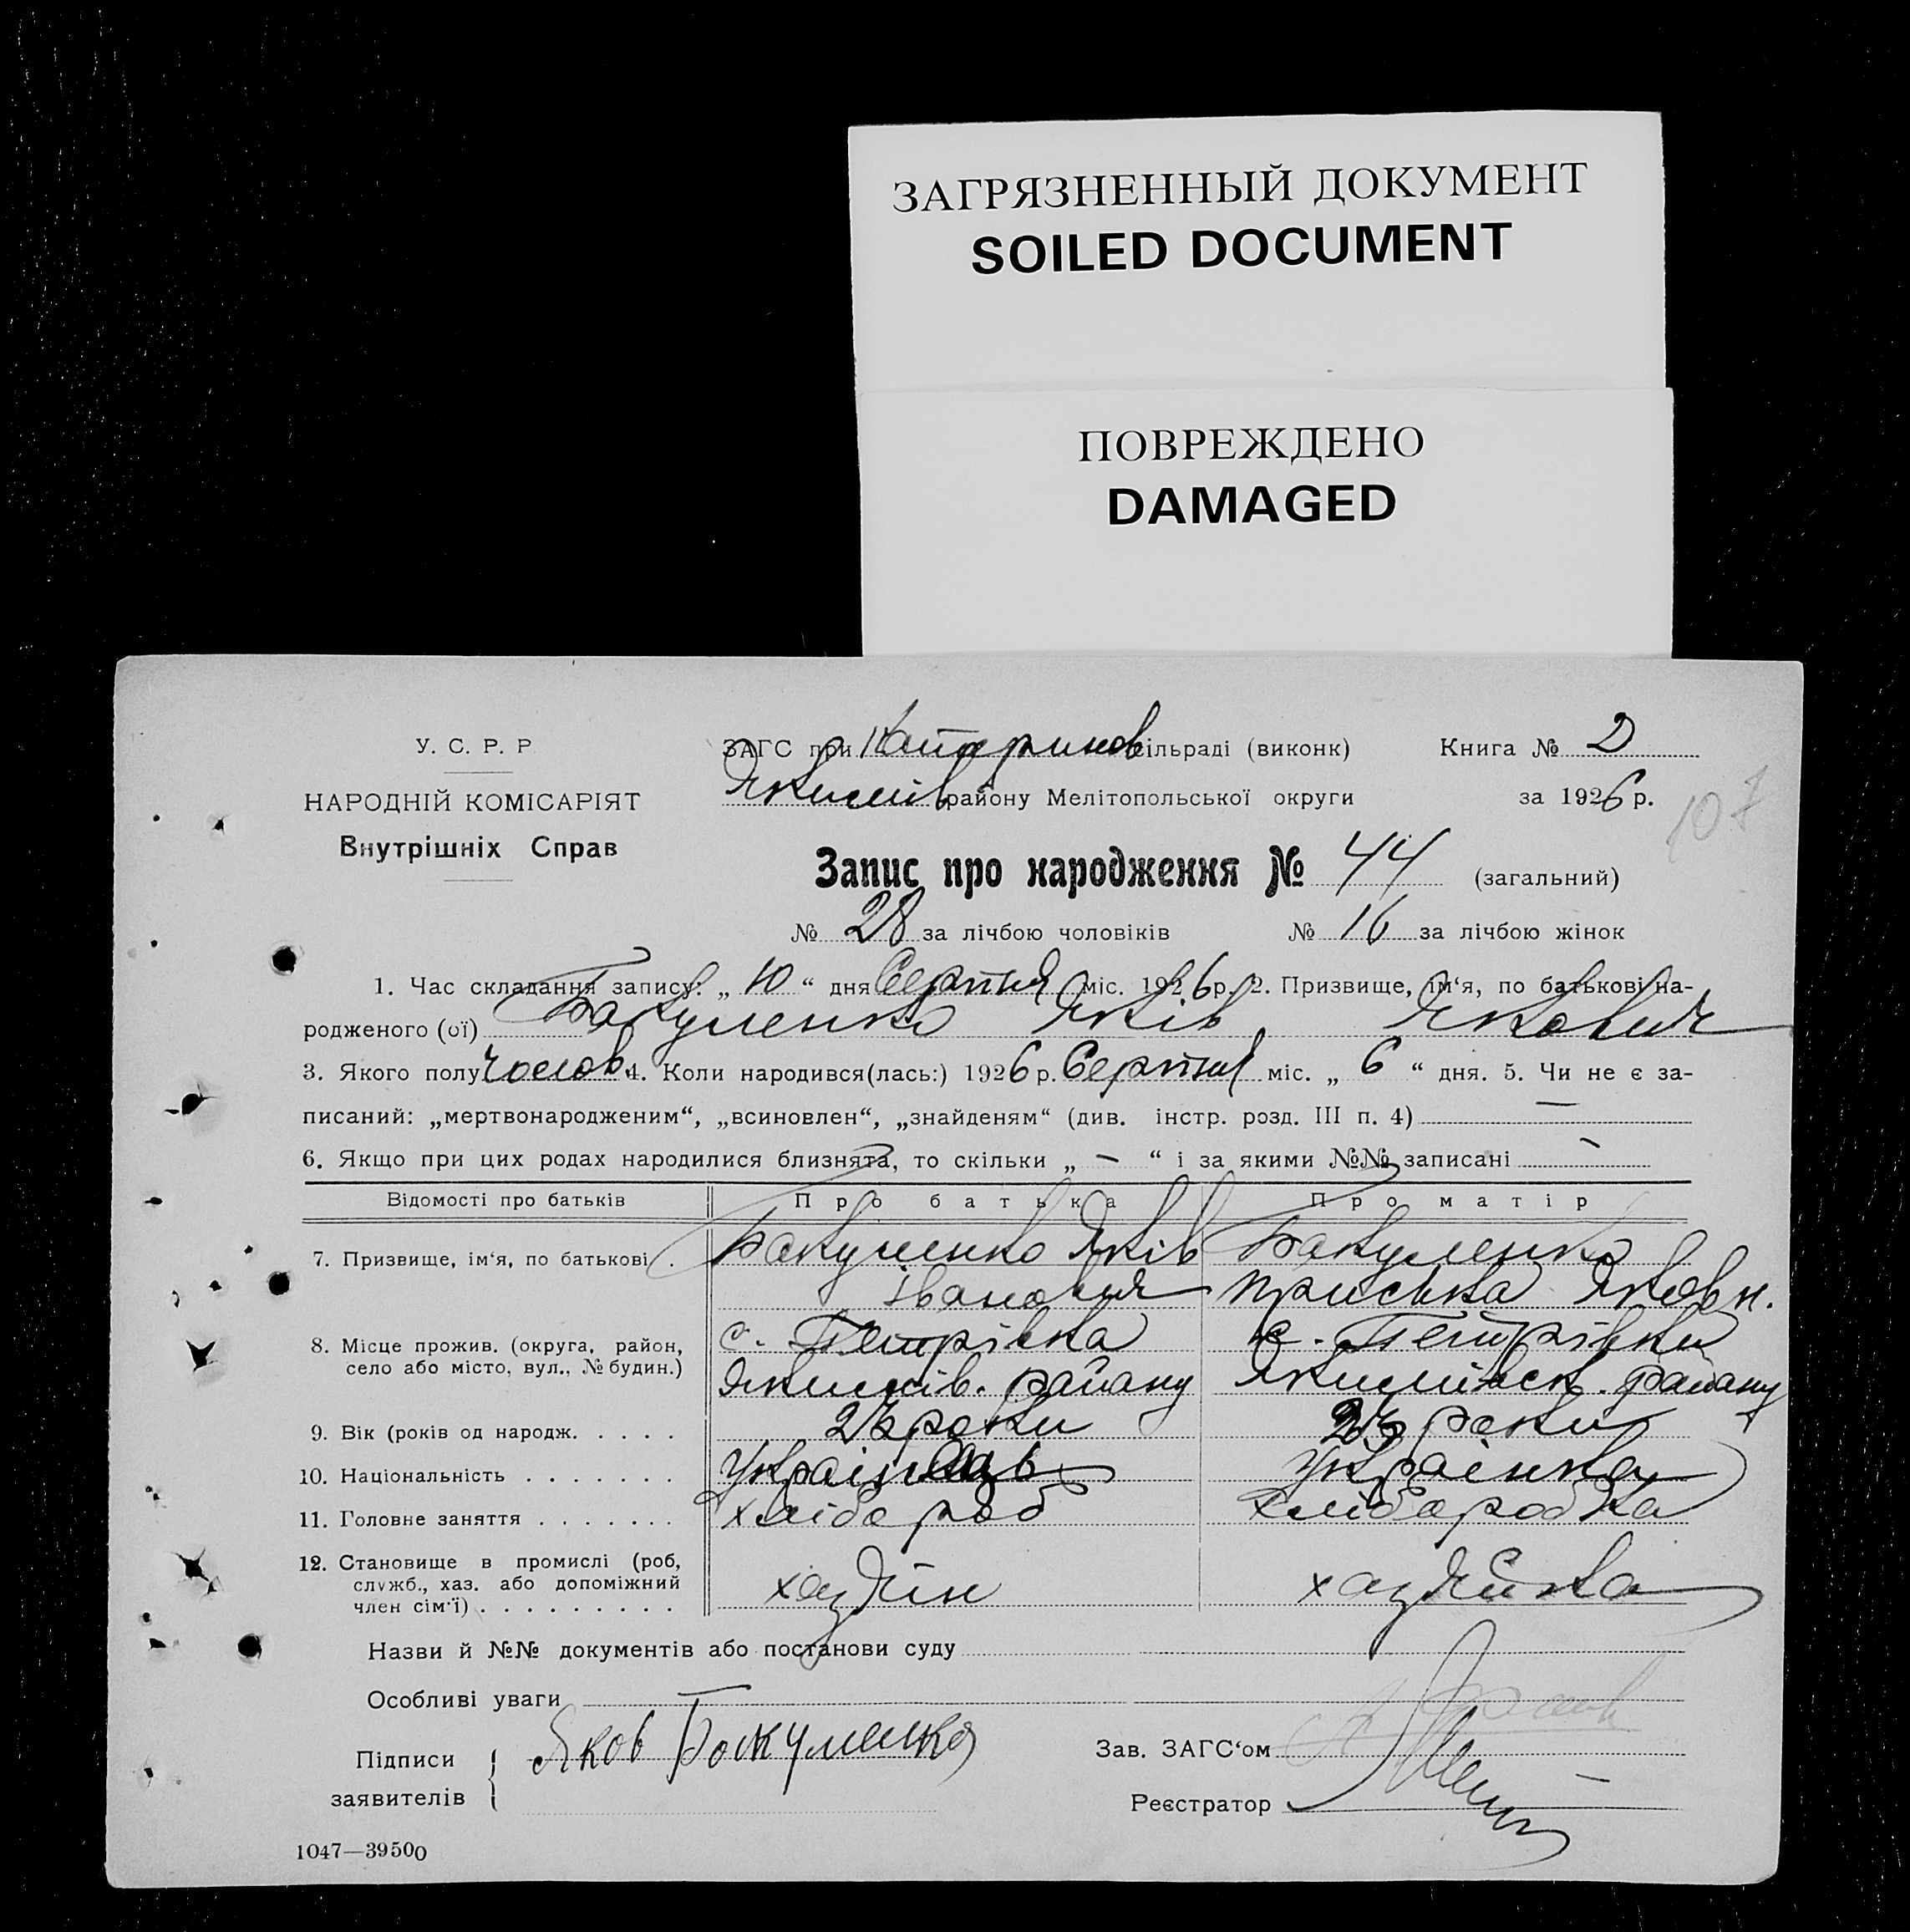 ЗАГРЯЗНЕННЫЙ ДОКУМЕНТ
SOILED DOCUMENT
ПОВРЕЖДЕНО
DAMAGED
У. С. Р. Р
НАРОДНІЙ КОМІСАРІЯТ
Внутрішніх Справ
ЗАГС при Катеринов сільраді (виконк) Книга № 2
Якимів району Мелітопольської округи за 1926 р.
107
Запис про народження № 44 (загальний)
№ 28 за лічбою чоловіків № 16 за лічбою жінок
1. Час складання запису: „ 10 “ дня Серпня міс. 1926 р. 2. Призвище, ім‘я, по батькові на-
родженого (ої) Бакуменко Яків Якович
3. Якого полу чолов. 4. Коли народився(лась:) 1926 р. Серпня міс. „ 6 “ дня. 5. Чи не є за-
писаний: „мертвонародженим“, „всиновлен“, „знайденям“ (див. інстр. розд. III п. 4) —
6. Якщо при цих родах народилися близнята, то скільки „ — “ і за якими №№ записані —
Відомості про батьків Про батька Про матір
7. Призвище, ім‘я, по батькові . Бакуменко Яків Бакуменко
Іванович Приська Яковн.
8. Місце прожив. (округа, район, с. Петрівка с. Петрівки
село або місто, вул., № будин.) Якимів. району Якимівськ. району
9. Вік (років од народж. . . . . 23 роки 23 роки
10. Національність . . . . . . . Українець Українка
11. Головне заняття . . . . . . . хлібороб хліборобка
12. Становище в промислі (роб,
служб., хаз. або допоміжний хазяїн хазяйка
член сім‘ї) . . . . . . . . .
Назви й №№ документів або постанови суду
Особливі уваги
Підписи Яков Бакуменко Зав. ЗАГС‘ом
заявителів Реєстратор
1047—39500